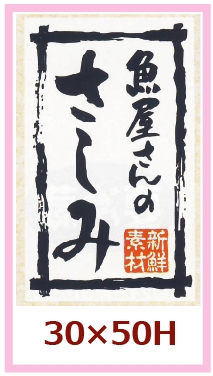 魚屋さんの
さしみ
新鮮
素材
30×50H